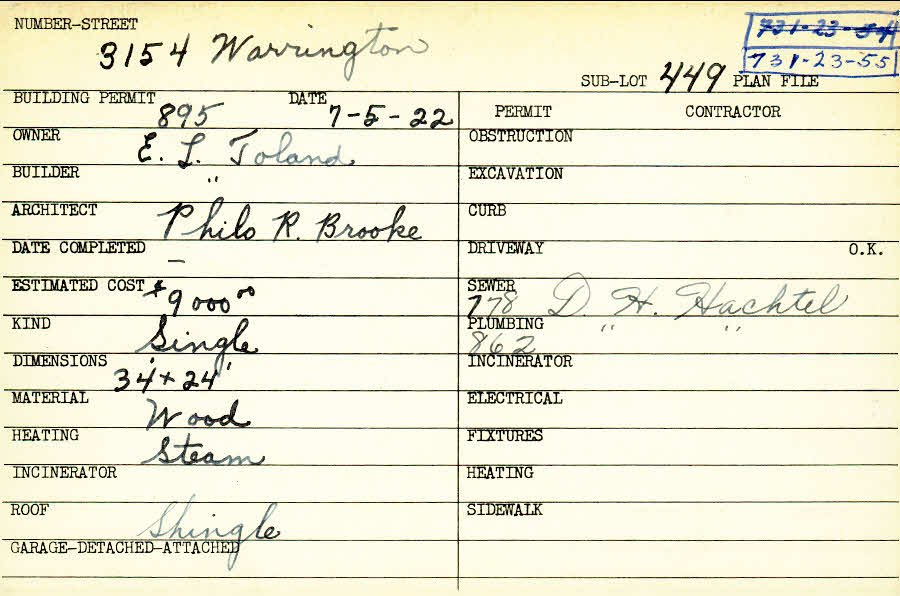 NUMBER-STREET
3154 Warrington
731-23-54
731-23-55
SUB-LOT 449 PLAN FILE
BUILDING PERMIT 895 DATE 7-5-22
OWNER E. L. Toland
BUILDER "
ARCHITECT Philo R. Brooke
DATE COMPLETED —
ESTIMATED COST $9000.00
KIND Single
DIMENSIONS 34' + 24'
MATERIAL Wood
HEATING Steam
INCINERATOR
ROOF Shingle
GARAGE-DETACHED-ATTACHED
PERMIT CONTRACTOR
OBSTRUCTION
EXCAVATION
CURB
DRIVEWAY O.K.
SEWER 778 D. H. Hachtel
PLUMBING 862 " "
INCINERATOR
ELECTRICAL
FIXTURES
HEATING
SIDEWALK